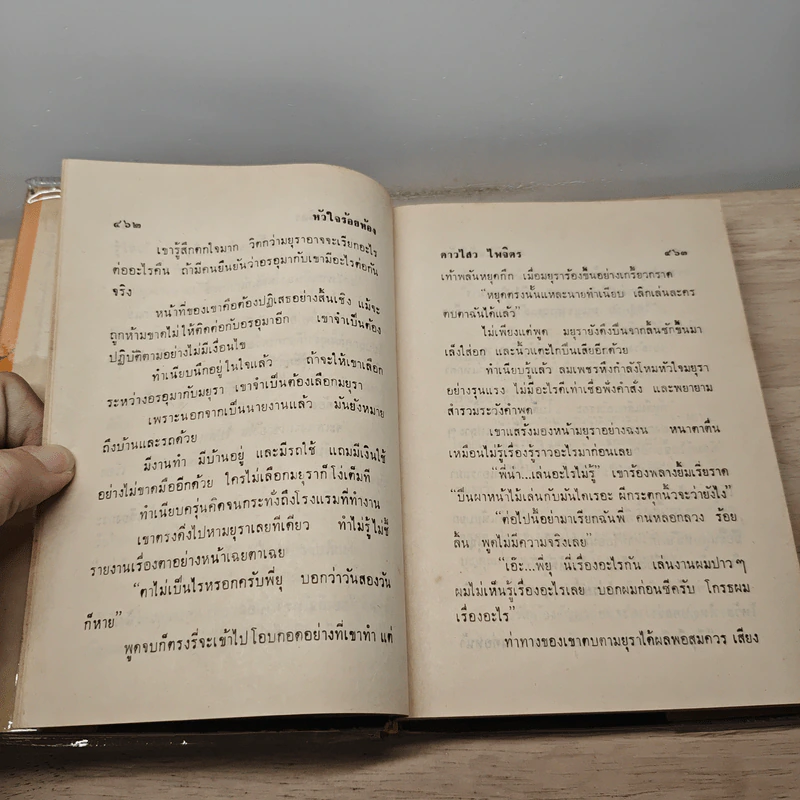 ๔๖๒
หัวใจร้อยห้อง
เขารู้สึกตกใจมาก วิตกว่ามยุราอาจจะเรียกอะไร
ต่ออะไรคืน ถ้ามีคนยืนยันว่าอรอุมากับเขามีอะไรต่อกัน
จริง
หน้าที่ของเขาคือต้องปฏิเสธอย่างสิ้นเชิง แม้จะ
ถูกห้ามขาดไม่ให้ติดต่อกับอรอุมาอีก เขาจำเป็นต้อง
ปฏิบัติตามอย่างไม่มีเงื่อนไข
ทำเนียบนึกอยู่ในใจแล้ว ถ้าจะให้เขาเลือก
ระหว่างอรอุมากับมยุรา เขาจำเป็นต้องเลือกมยุรา
เพราะนอกจากเป็นนายงานแล้ว มันยังหมาย
ถึงบ้านและรถด้วย
มีงานทำ มีบ้านอยู่ และมีรถใช้ แถมมีเงินใช้
อย่างไม่ขาดมืออีกด้วย ใครไม่เลือกมยุราก็โง่เต็มที
ทำเนียบครุ่นคิดจนกระทั่งถึงโรงแรมที่ทำงาน
เขาตรงดิ่งไปหามยุราเลยทีเดียว ทำไม่รู้ไม่ชี้
รายงานเรื่องตาอย่างหน้าเฉยตาเฉย
“ตาไม่เป็นไรหรอกครับพี่ยุ บอกว่าวันสองวัน
ก็หาย”
พูดจบก็ตรงรี่จะเข้าไปโอบกอดอย่างที่เขาทำ แต่
ดาวไสว ไพจิตร
๔๖๓
เท้าพลันหยุดกึก เมื่อมยุราร้องขึ้นอย่างเกรี้ยวกราด
“หยุดตรงนั้นแหละนายทำเนียบ เลิกเล่นละคร
ตบตาฉันได้แล้ว”
ไม่เพียงแต่พูด มยุรายังดึงปืนจากลิ้นชักขึ้นมา
เล็งใส่อก และนิ้วแตะไกปืนเสียอีกด้วย
ทำเนียบรู้แล้ว ลมเพชรหึงกำลังโหมหัวใจมยุรา
อย่างรุนแรง ไม่มีอะไรดีเท่าเชื่อฟังคำสั่ง และพยายาม
สำรวมระวังคำพูด
เขาแสร้งมองหน้ามยุราอย่างฉงน หน้าตาตื่น
เหมือนไม่รู้เรื่องรู้ราวอะไรมาก่อนเลย
“พี่น่า...เล่นอะไรไม่รู้” เขาร้องพลางยิ้มเรี่ยราด
“ปืนผาหน้าไม้เล่นกับมันได้เรอะ ผีกระตุกนิ้วจะว่ายังไง”
“ต่อไปนี้อย่ามาเรียกฉันพี่ คนหลอกลวง ร้อย
ลิ้น พูดไม่มีความจริงเลย”
“เอ๊ะ...พี่ยุ นี่เรื่องอะไรกัน เล่นงานผมปาวๆ
ผมไม่เห็นรู้เรื่องอะไรเลย บอกผมก่อนซีครับ โกรธผม
เรื่องอะไร”
ท่าทางของเขาตบตามยุราได้ผลพอสมควร เสียง